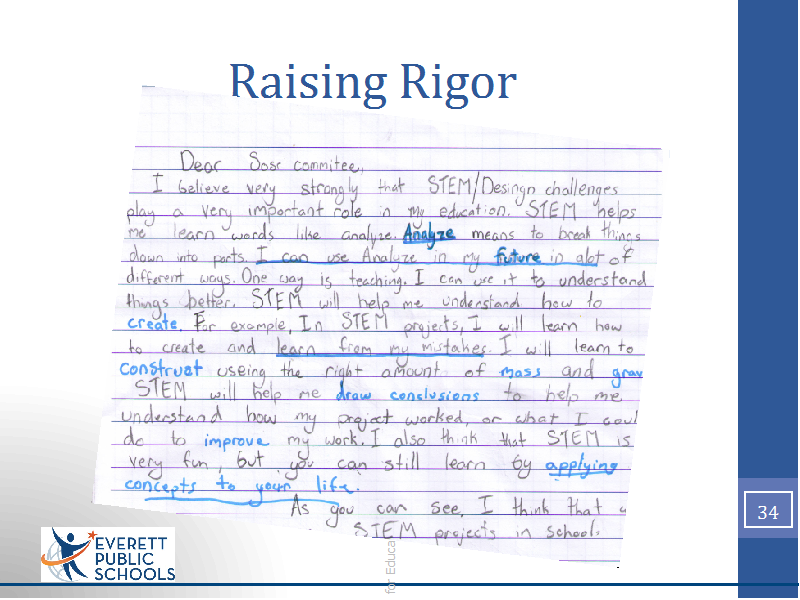 Raising Rigor
Dear Sosc commitee,
I believe very strongly that STEM/Desingn challenges
play a very important role in my education. STEM helps
me learn words like analyze. Analyze means to break things
down into parts. I can use Analyze in my future in alot of
different ways. One way is teaching. I can use it to understand
things better. STEM will help me understand how to
create. For example, In STEM projects, I will learn how
to create and learn from my mistakes. I will learn to
construct useing the right amount of mass and grav
STEM will help me draw conclusions to help me
understand how my project worked, or what I coul
do to improve my work. I also think that STEM is
very fun, but you can still learn by applying
concepts to your life.
As you can see, I think that
STEM projects in school.
34
EVERETT
PUBLIC
SCHOOLS
for Educa